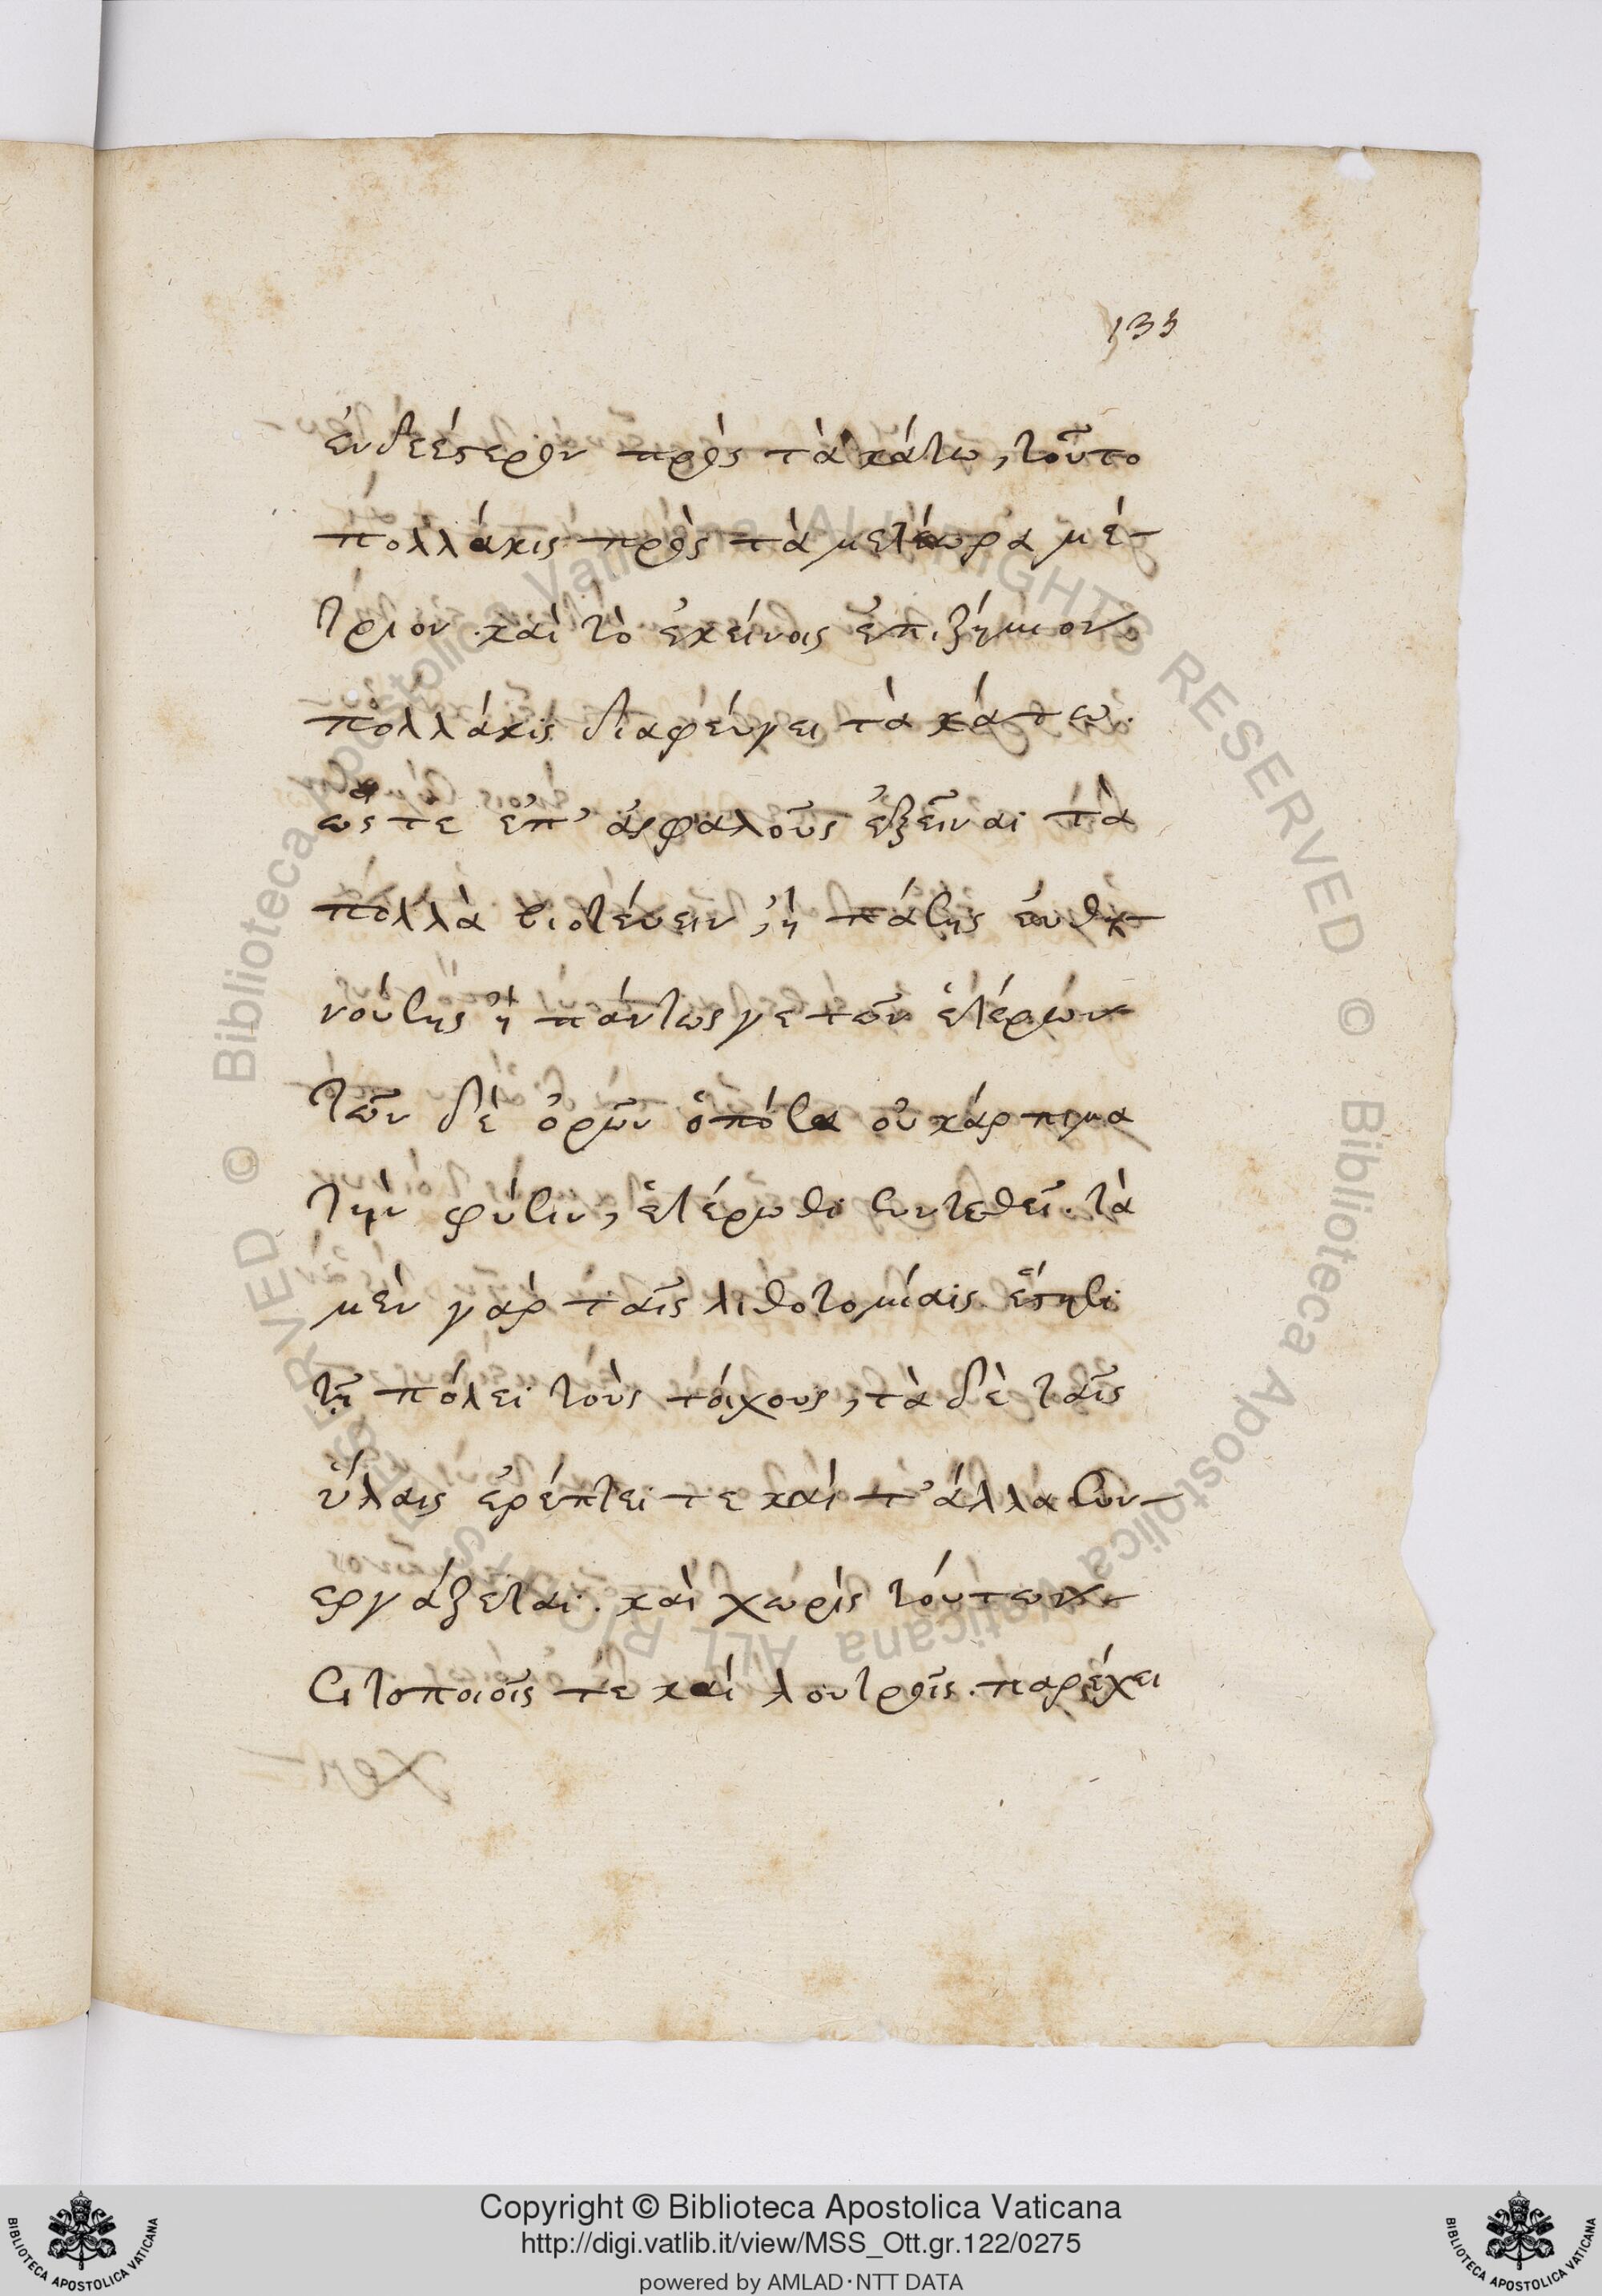 133
ἐνδεέστερον πρὸς τὰ κάτω, τοῦτο
πολλάκις πρὸς τὰ μετέωρα μέ-
τριον. καὶ τὸ ἐκείνοις ἐπιζήμιον
πολλάκις διαφεύγει τὰ κάτω.
ὥστε ἐπ' ἀσφαλοῦς ἐξεῖναι τὰ
πολλὰ βιοτεύειν, ἢ πάσης εὐθη-
νούσης ἢ πάντως γε τῶν ἑτέρων
τῶν δὲ ὀρῶν ὁπόσα οὐ κάρπιμα
τὴν φύσιν, ἑτέρωθι συντεθεῖ. τὰ
μὲν γὰρ ταῖς λιθοτομίαις ἔστησι
τῇ πόλει τοὺς τοίχους, τὰ δὲ ταῖς
ὕλαις ἐρέπτει τε καὶ τ' ἄλλα συν-
εργάζεται. καὶ χωρὶς τούτων
σιτοποιοῖς τε καὶ λουτροῖς. παρέχει
Copyright © Biblioteca Apostolica Vaticana
http://digi.vatlib.it/view/MSS_Ott.gr.122/0275
powered by AMLAD·NTT DATA
BIBLIOTECA APOSTOLICA VATICANA
BIBLIOTECA APOSTOLICA VATICANA
© Biblioteca Apostolica Vaticana ALL RIGHTS RESERVED
© Biblioteca Apostolica Vaticana ALL RIGHTS RESERVED